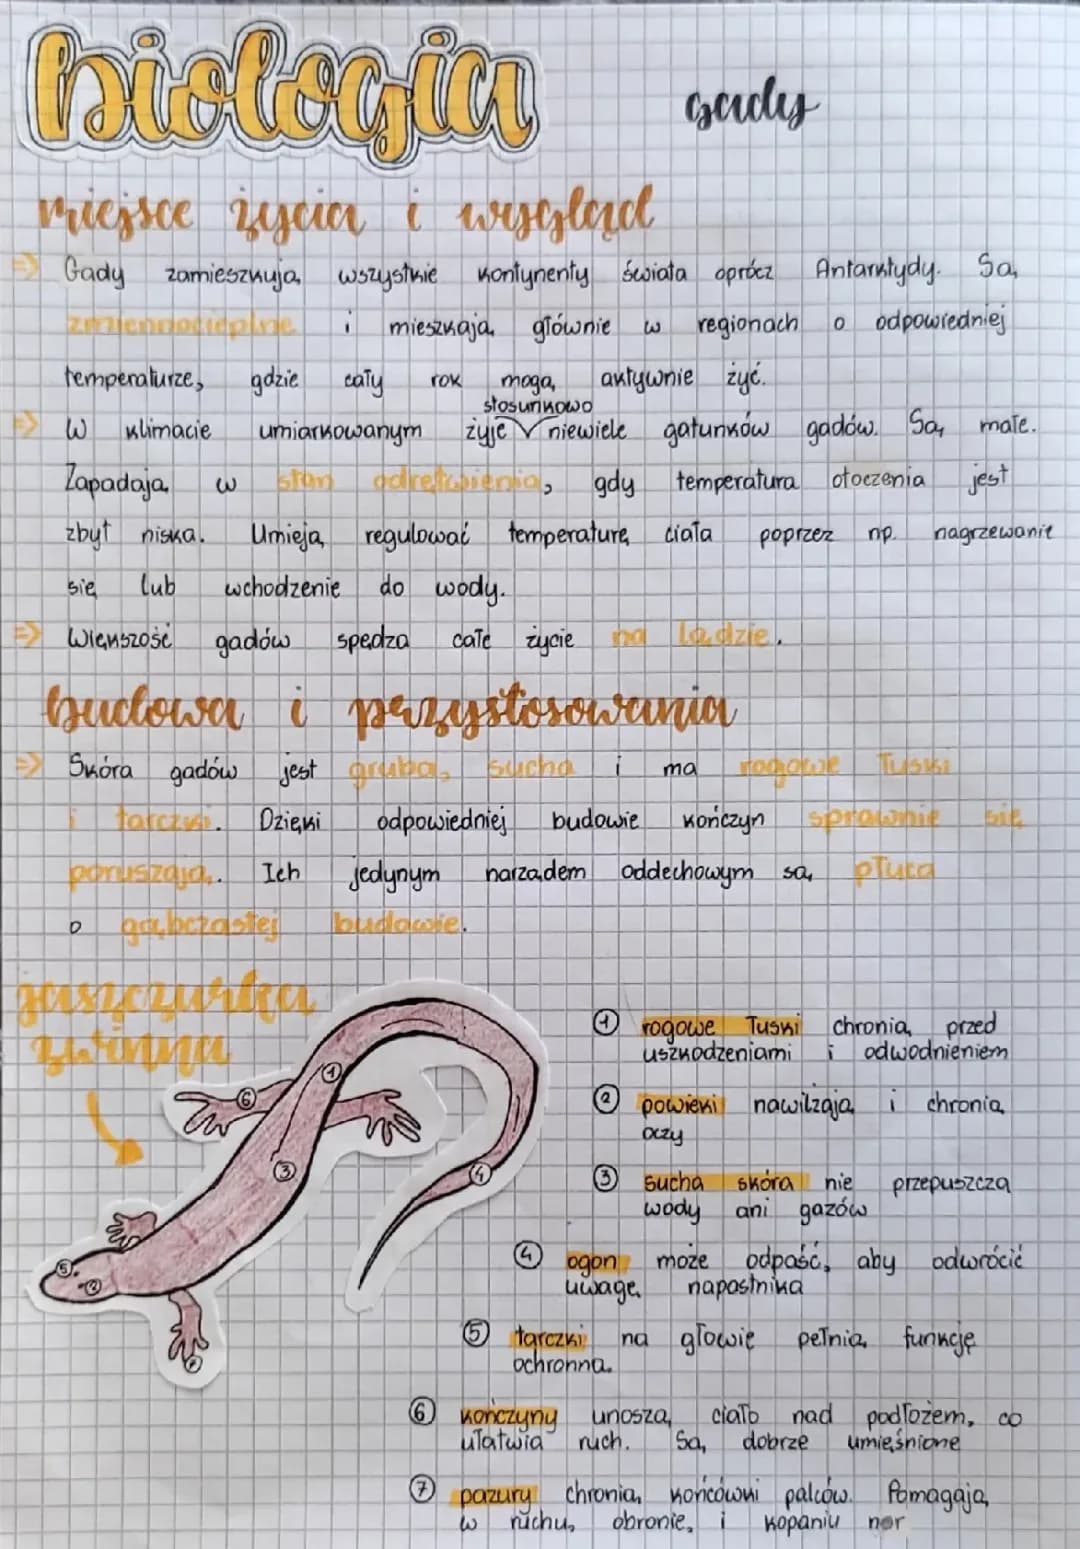 biologia
gady
miejsce życia i wygląd
=> Gady zamieszkują wszystkie kontynenty świata oprócz Antarktydy. Są
zmiennocieplne i mieszkają głównie w regionach o odpowiedniej
temperaturze, gdzie cały rok mogą aktywnie żyć.
stosunkowo
=> W klimacie umiarkowanym żyje niewiele gatunków gadów. Są małe.
Zapadają w stan odrętwienia, gdy temperatura otoczenia jest
zbyt niska. Umieją regulować temperaturę ciała poprzez np. nagrzewanie
się lub wchodzenie do wody.
=> Większość gadów spędza całe życie na lądzie.
budowa i przystosowania
=> Skóra gadów jest gruba, sucha i ma rogowe łuski
i tarczki. Dzięki odpowiedniej budowie kończyn sprawnie się
poruszają. Ich jedynym narządem oddechowym są płuca
o gąbczastej budowie.
jaszczurka
zwinna
1 rogowe łuski chronią przed
uszkodzeniami i odwodnieniem
2 powieki nawilżają i chronią
oczy
3 sucha skóra nie przepuszcza
wody ani gazów
4 ogon może odpaść, aby odwrócić
uwagę napastnika
5 tarczki na głowie pełnią funkcję
ochronną.
6 kończyny unoszą ciało nad podłożem, co
ułatwia ruch. Są dobrze umięśnione
7 pazury chronią końcówki palców. Pomagają
w ruchu, obronie, i kopaniu nor
1
6
3
4
5
2
7